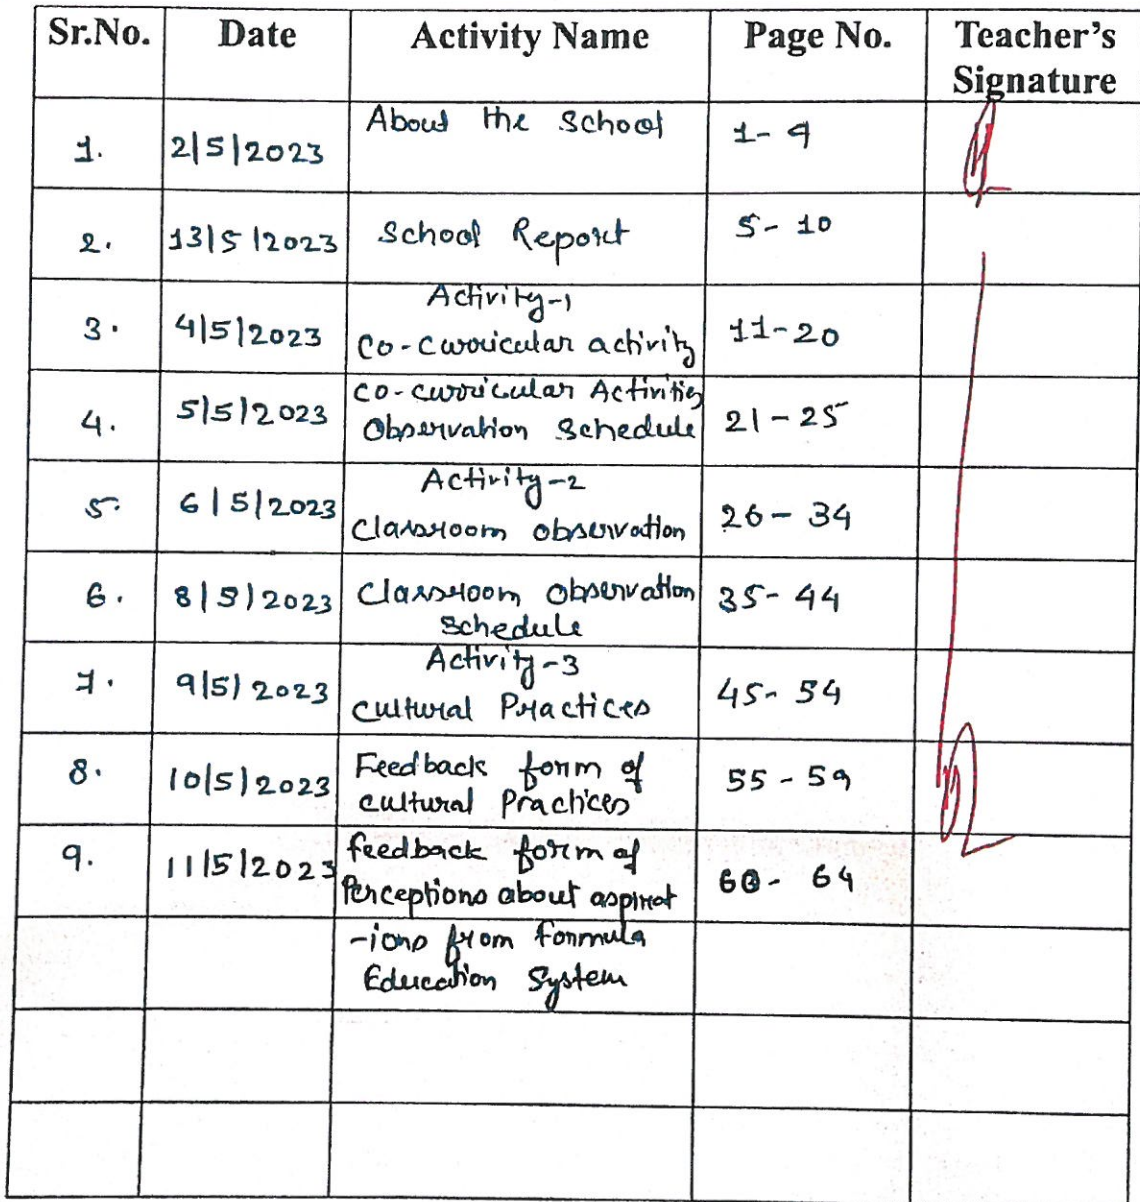 Sr.No. Date Activity Name Page No. Teacher's
Signature
1. 2/5/2023 About the School 1- 4
2. 13/5/2023 School Report 5- 10
Activity-1
3. 4/5/2023 Co-curricular activity 11-20
Co-curricular Activities
4. 5/5/2023 Observation Schedule 21-25
Activity-2
5. 6/5/2023 Classroom observation 26-34
6. 8/5/2023 Classroom Observation 35-44
Schedule
Activity-3
7. 9/5/2023 Cultural Practices 45-54
8. 10/5/2023 Feedback form of 55-59
cultural Practices
9. 11/5/2023 feedback form of
Perceptions about aspirat 60- 64
-ions from formula
Education System